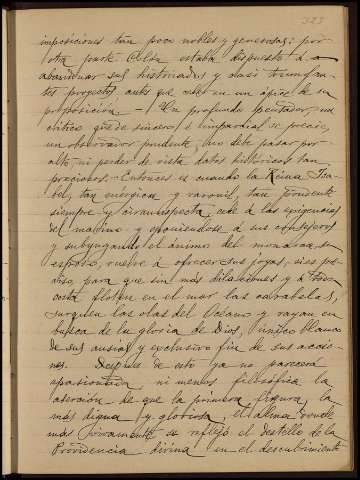 323
imposiciones tan poco nobles y generosas: por
otra parte Colón estaba dispuesto á
abandonar sus historiados y casi triunfan-
tes proyectos antes que ceder en un ápice de su
proposición. — Un profundo pensador, un
crítico que de sincero é imparcial se precie,
un observador prudente no debe pasar por
alto, ni perder de vista datos históricos tan
preciosos. — Entonces es cuando la Reina Isa-
bel, tan enérgica y varonil, tan prudente
siempre y circunspecta, cede á las exigencias
del marino y oponiéndose á sus consejeros
y subyugando el ánimo del monarca su
esposo, vuelve á ofrecer sus joyas, si es pre-
ciso, para que sin más dilaciones y á toda
costa floten en el mar las carabelas,
surquen las olas del Océano y vayan en
busca de la gloria de Dios, único blanco
de sus ansias y exclusivo fin de sus accio-
nes. Después de esto ya no parecerá
apasionada, ni menos filosófica la
aserción de que la primera figura, la
más digna y gloriosa, el alma donde
más vivamente se reflejó el destello de la
Providencia divina en el descubrimiento